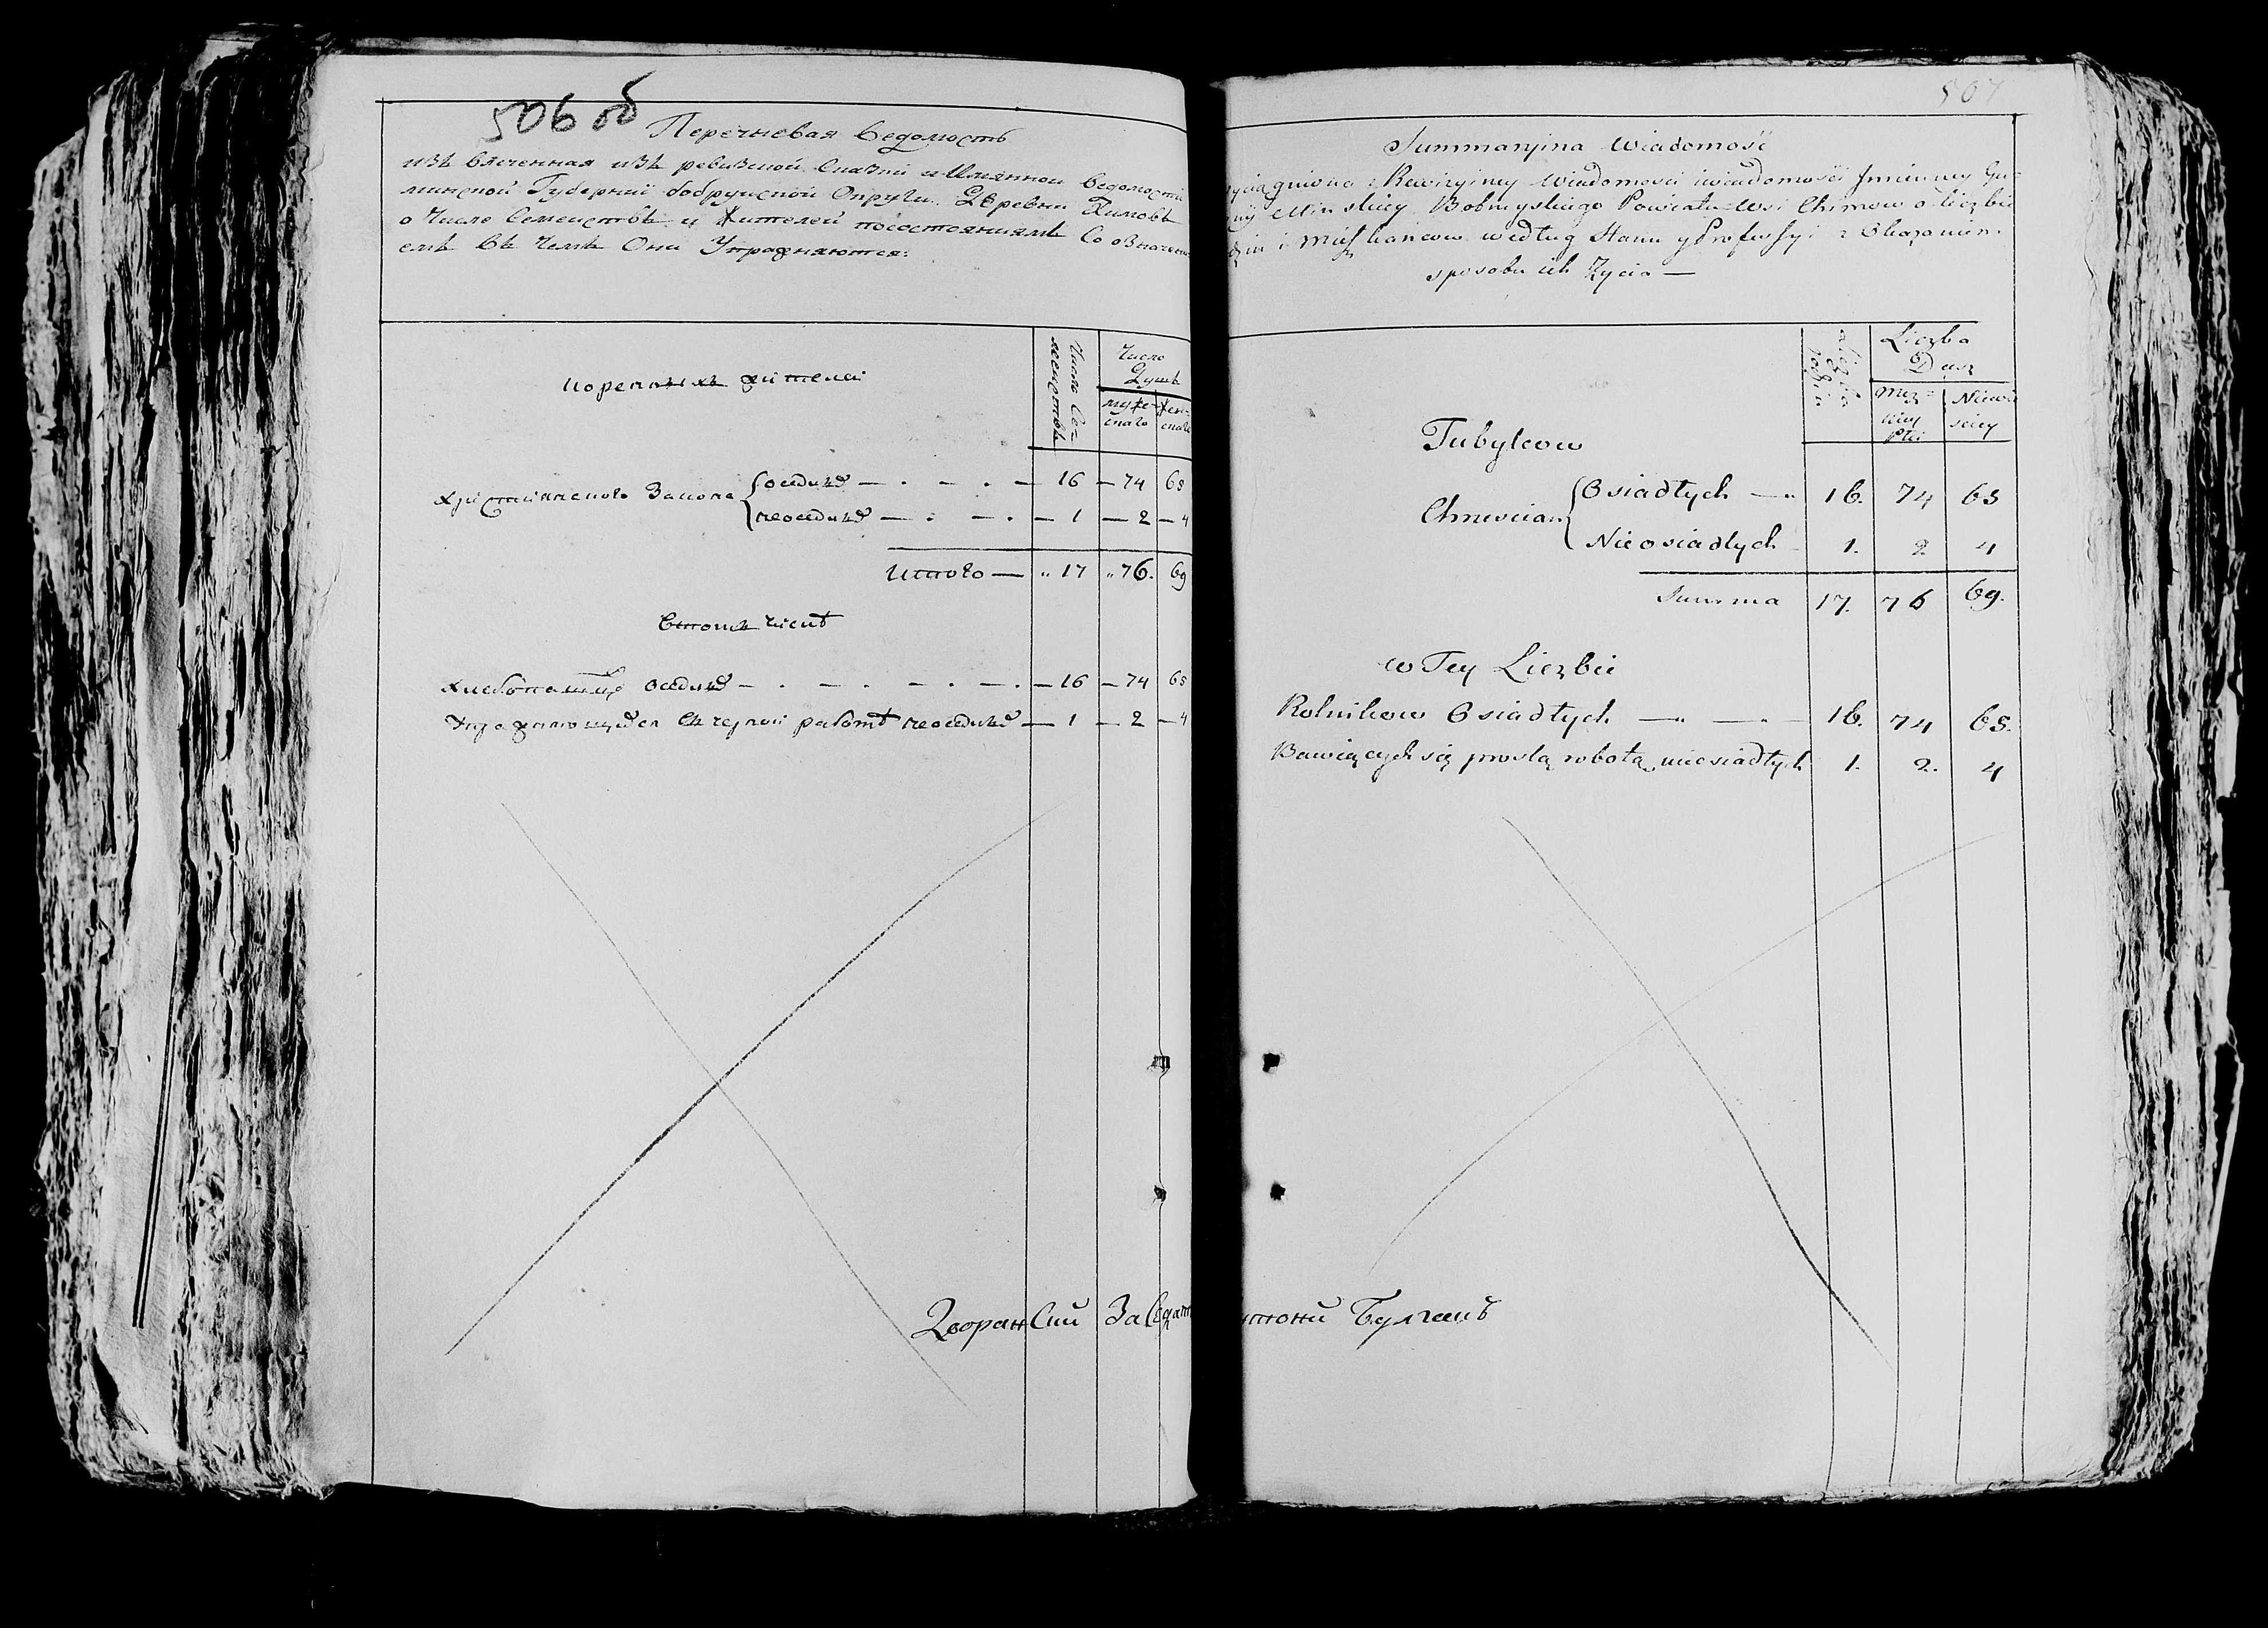 506 об
Перечневая Ведомость
изъ влеченная изъ ревизской Сказки и Имянной Ведомости
минской Губернии бобруиской Округи Деревни Химовъ
о Числе Семеиствъ и Жителей посостояниямъ Со означени
емъ въ чемъ Они Упражняются:
Число Се-
меиствъ
Число
Душъ
коренныхъ жителей
муже-
скаго
жен-
скаго
Христианскаго Закона
оседлыхъ — 16 — 74 65
неоседлыхъ — 1 — 2 — 4
Итого — 17 76. 69
Втомъ числѣ
хлебопашцѣ оседлыхъ — 16 — 74 65
Упражняющихся въ черной работѣ неоседлыхъ — 1 — 2 — 4
Дворянский Заседат
507
Summaryina Wiadomość
yciągniona z Rewizyiney Wiadomosci i wiadomości Jmienney Gu-
nij Minskiey Bobruyskiego Powiatu Wsi Chimow o liczbie
dzin i Mieszkancow według Stanu y Professyi z Okazaniem
sposobu ich Życia —
Liczba
rodzin
Liczba
Dusz
Męz-
kiey
Płci
Niewie
sciey
Tubylcow
Chrescian
Osiadłych — 16. 74 65
Nieosiadłych 1. 2 4
Summa 17. 76 69.
w Tey Liczbie
Rolnikow Osiadłych — 16. 74 65.
Bawiących się prostą robotą nieosiadłych 1. 2. 4
нтони Булгакъ